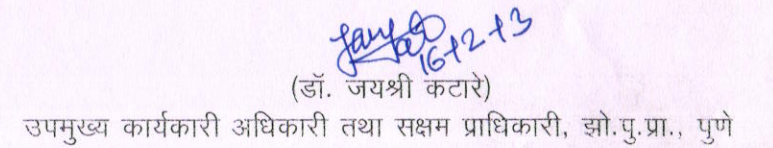 16/2/23
(डॉ. जयश्री कटारे)
उपमुख्य कार्यकारी अधिकारी तथा सक्षम प्राधिकारी, झो.पु.प्रा., पुणे